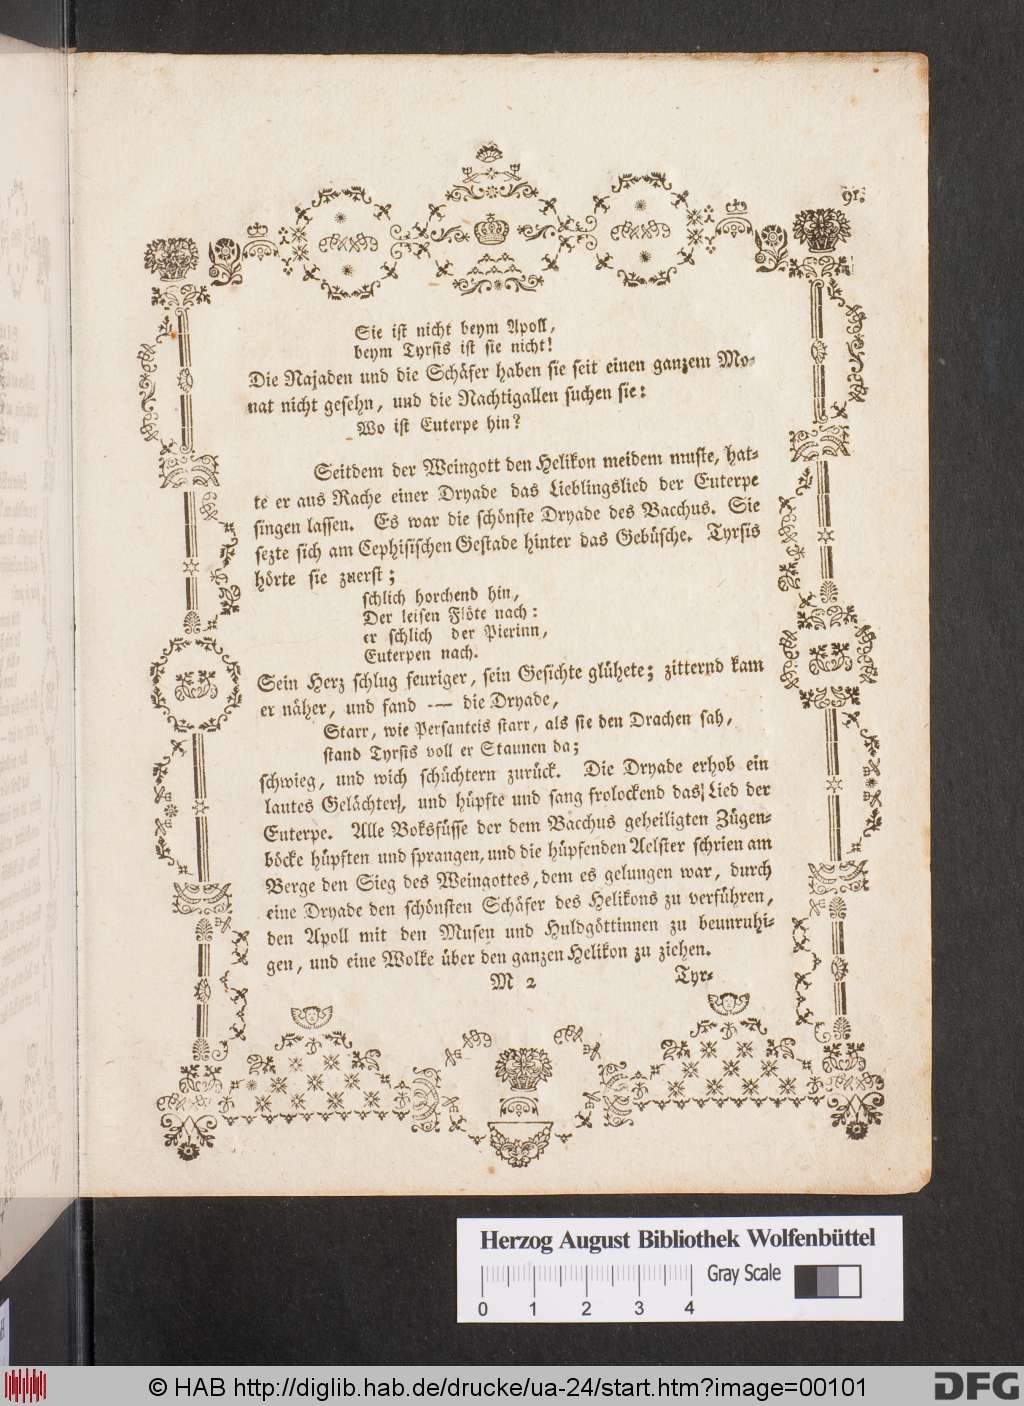 91.
Sie ist nicht beym Apoll,
beym Tyrsis ist sie nicht!
Die Najaden und die Schäfer haben sie seit einen ganzem Mo-
nat nicht gesehn, und die Nachtigallen suchen sie:
Wo ist Euterpe hin?
Seitdem der Weingott den Helikon meidem muste, hat-
te er aus Rache einer Dryade das Lieblingslied der Euterpe
singen lassen. Es war die schönste Dryade des Bacchus. Sie
sezte sich am Cephisischen Gestade hinter das Gebüsche. Tyrsis
hörte sie zuerst;
schlich horchend hin,
Der leisen Flöte nach:
er schlich der Pierinn,
Euterpen nach.
Sein Herz schlug feuriger, sein Gesichte glühete; zitternd kam
er näher, und fand -— die Dryade,
Starr, wie Persanteis starr, als sie den Drachen sah,
stand Tyrsis voll er Staunen da;
schwieg, und wich schüchtern zurück. Die Dryade erhob ein
lautes Gelächter, und hüpfte und sang frolockend das Lied der
Euterpe. Alle Boksfüsse der dem Bacchus geheiligten Zügen-
böcke hüpften und sprangen, und die hüpfenden Aelster schrien am
Berge den Sieg des Weingottes, dem es gelungen war, durch
eine Dryade den schönsten Schäfer des Helikons zu verführen,
den Apoll mit den Musen und Huldgöttinnen zu beunruhi-
gen, und eine Wolke über den ganzen Helikon zu ziehen.
M 2 Tyr-
Herzog August Bibliothek Wolfenbüttel
Gray Scale
0 1 2 3 4
© HAB http://diglib.hab.de/drucke/ua-24/start.htm?image=00101
DFG